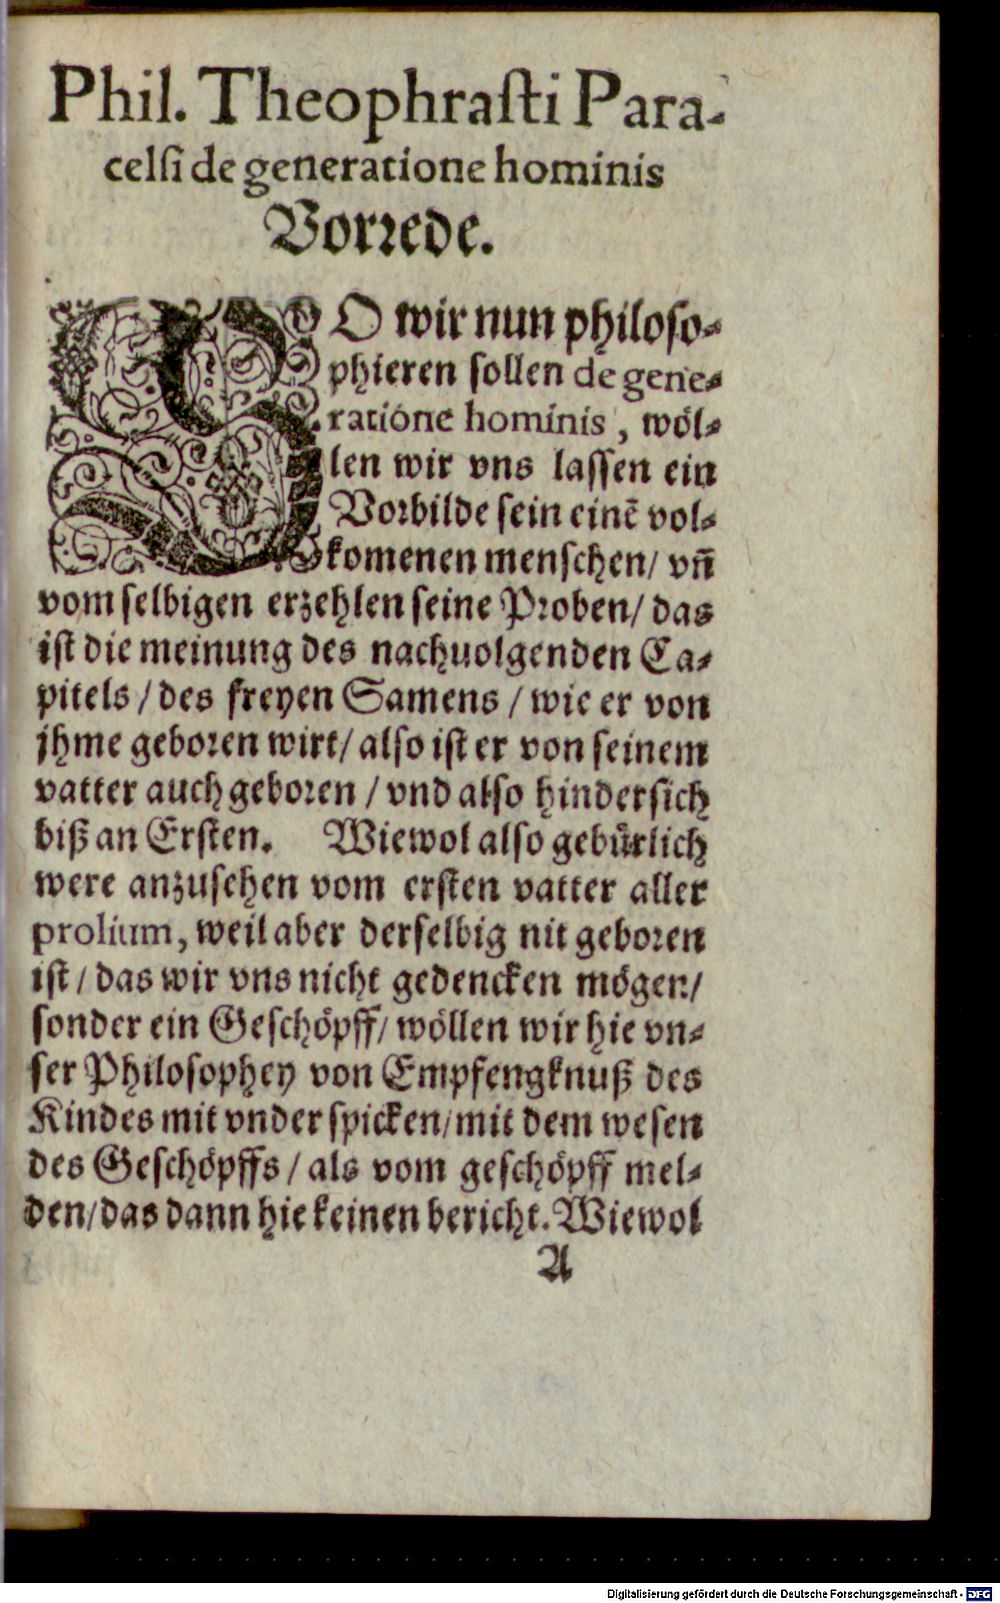 Phil. Theophraſti Para-
celſi de generatione hominis
Vorrede.
SO wir nun philoſo-
phieren ſollen de gene-
ratione hominis, wöl-
len wir vns laſſen ein
Vorbilde ſein einẽ vol-
komenen menſchen/ vñ
vom ſelbigen erzehlen ſeine Proben/ das
iſt die meinung des nachuolgenden Ca-
pitels / des freyen Samens / wie er von
jhme geboren wirt/ alſo iſt er von ſeinem
vatter auch geboren / vnd alſo hinderſich
biß an Erſten. Wiewol alſo gebuͤrlich
were anzuſehen vom erſten vatter aller
prolium, weil aber derſelbig nit geboren
iſt / das wir vns nicht gedencken mögen/
ſonder ein Geſchöpff/ wöllen wir hie vn-
ſer Philoſophey von Empfengknuß des
Kindes mit vnder ſpicken/ mit dem weſen
des Geſchöpffs / als vom geſchöpff mel-
den/ das dann hie keinen bericht. Wiewol
A
Digitalisierung gefördert durch die Deutsche Forschungsgemeinschaft - DFG